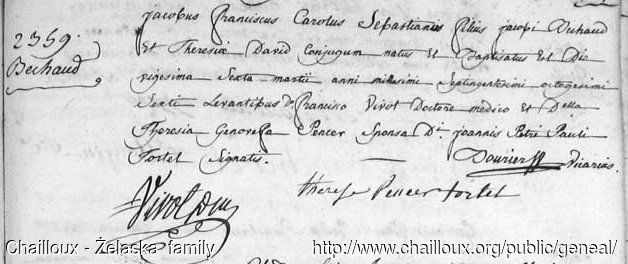 2359.
Bechaud
Jacobus Franciscus Carolus Sebastianus filius Jacobi Bechaud
Et Theresiæ David Conjugum natus Et Baptisatus Est Die
vigesima Sexta martii anni millesimi Septingentesimi octogesimi
Sexti Levantibus D. Francisco Vivot Doctore medico Et Della
Theresia Genovefa Pencer Sponsa D.ni joannis Petri Pauli
Fortet Signatis.
Vicarius.
Vivot
therese Pencer fortet
Chailloux - Żelaska family
http://www.chailloux.org/public/geneal/